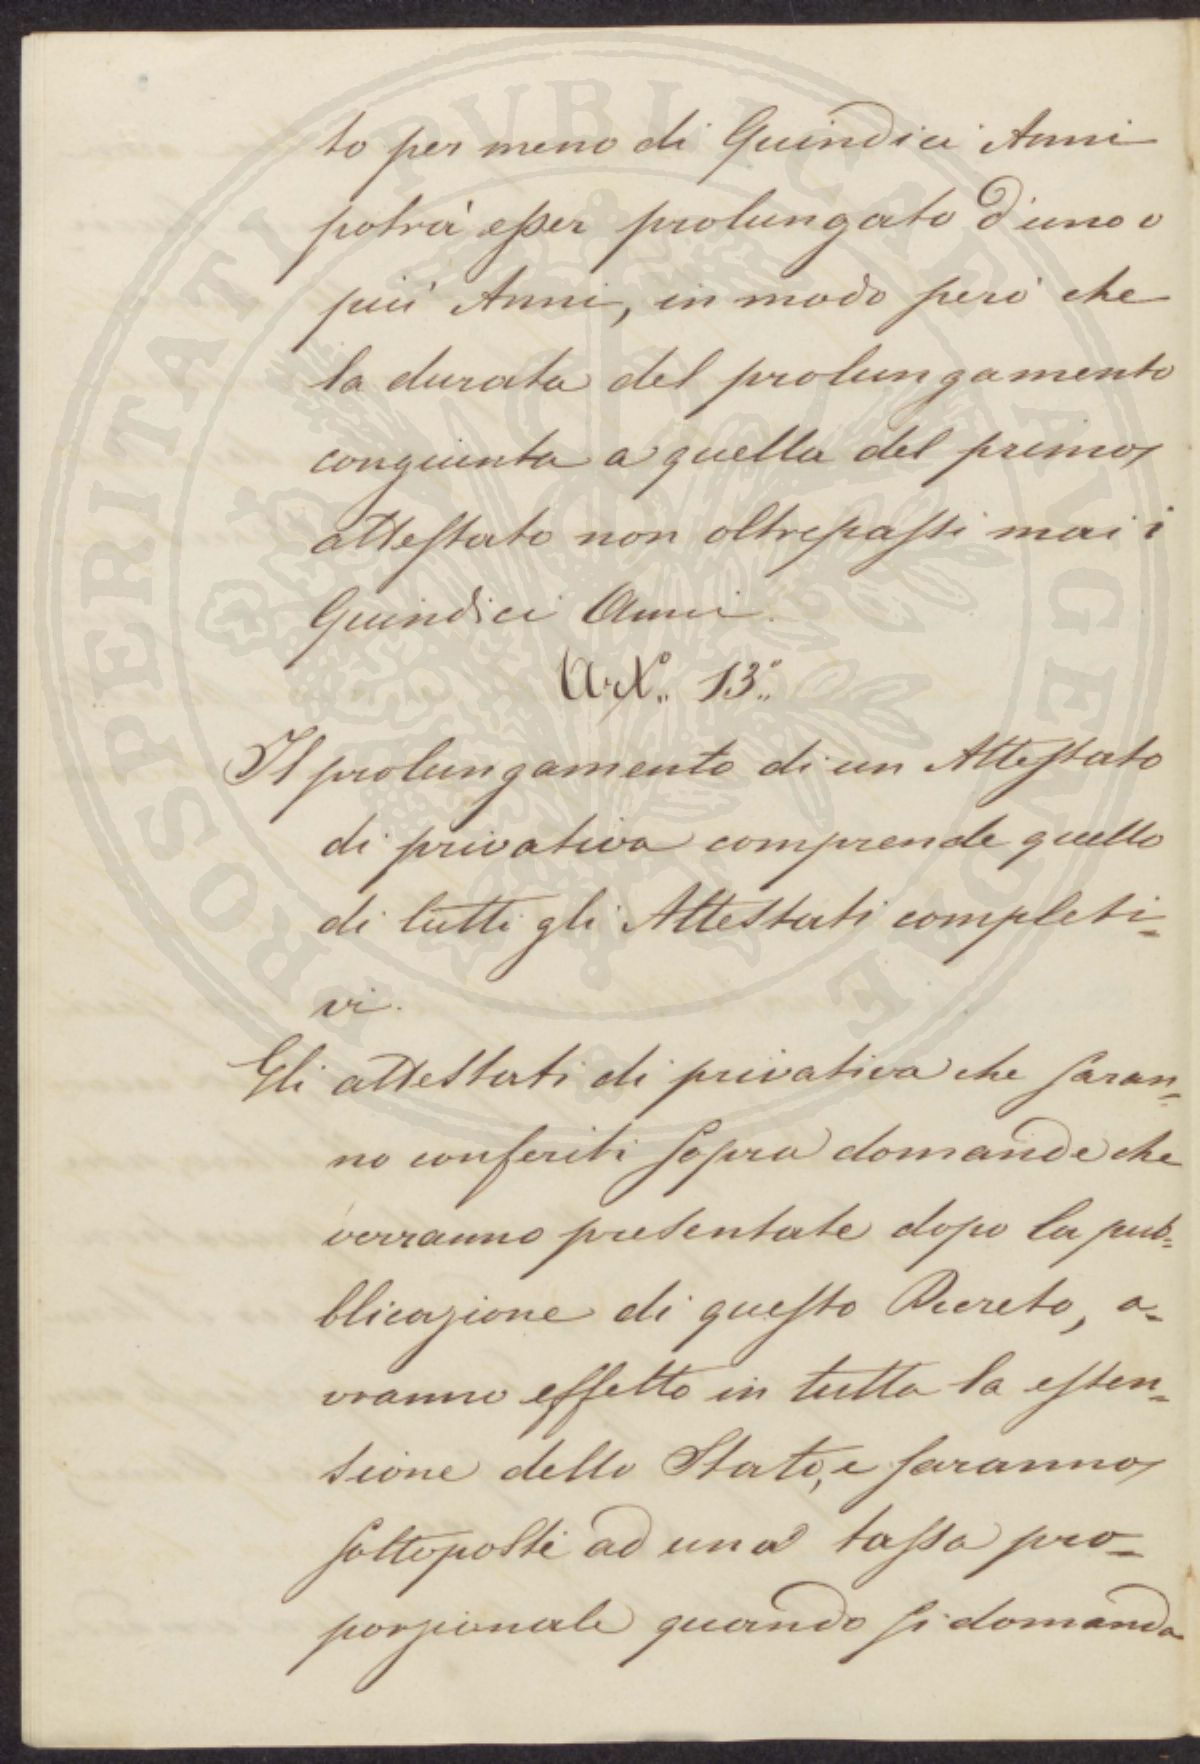 to per meno di Quindici Anni
potrà esser prolungato d'uno o
più Anni, in modo però che
la durata del prolungamento
congiunta a quella del primo
attestato non oltrepassi mai i
Quindici Anni.
Art.° 13.°
Il prolungamento di un Attestato
di privativa comprende quello
di tutti gli Attestati completi=
vi.
Gli attestati di privativa che saran=
no conferiti sopra domande che
verranno presentate dopo la pub=
blicazione di questo Decreto, a=
vranno effetto in tutta la esten=
sione dello Stato, e saranno
sottoposti ad una tassa pro=
porzionale quando si domanda
PROSPERITATI PVBLICAE AVGENDAE